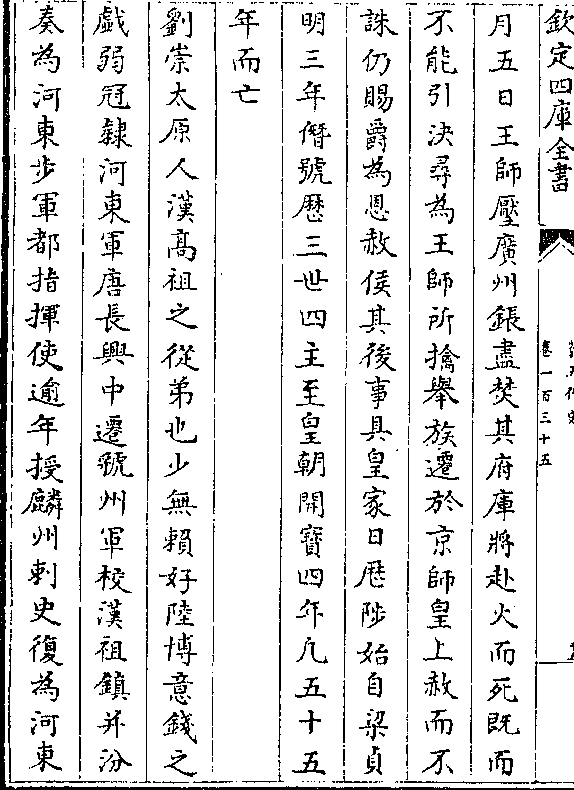 欽定四庫全書
卷一百三十五
月五日王師壓廣州鋹盡焚其府庫將赴火而死既而
不能引決尋為王師所擒舉族遷於京師皇上赦而不
誅仍賜爵為恩赦侯其後事具皇家日厯陟始自梁貞
明三年僭號厯三世四主至皇朝開寶四年凡五十五
年而亡
劉崇太原人漢高祖之從弟也少無賴好陸博意錢之
戯弱冠隸河東軍唐長興中遷號州軍校漢祖鎮并汾
奏為河東步軍都指揮使逾年授麟州刺史復為河東